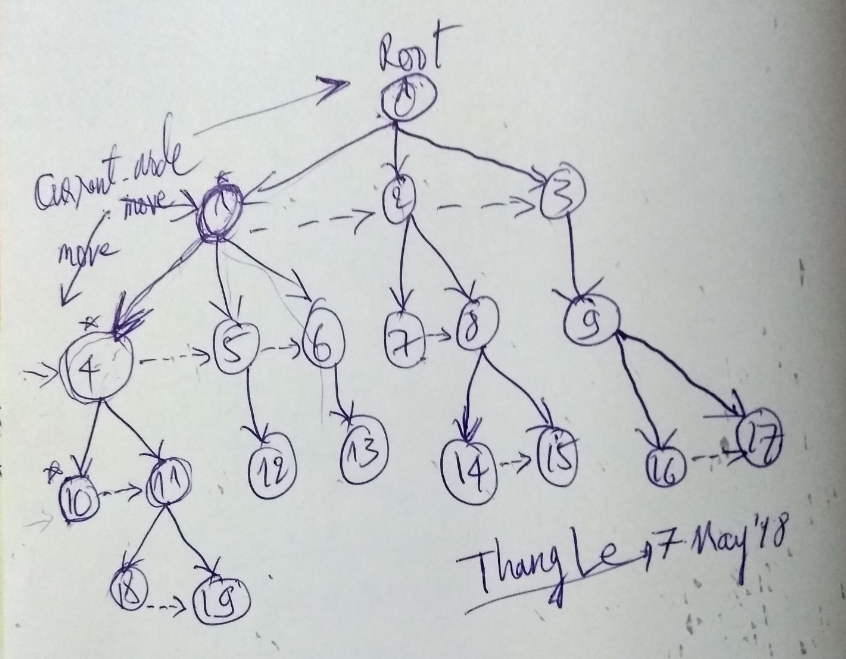 Root
0
Current-node
move
1
2
3
move
*
4
5
6
7
8
9
*
10
11
12
13
14
15
16
17
18
19
Thang Le, 7 May'18